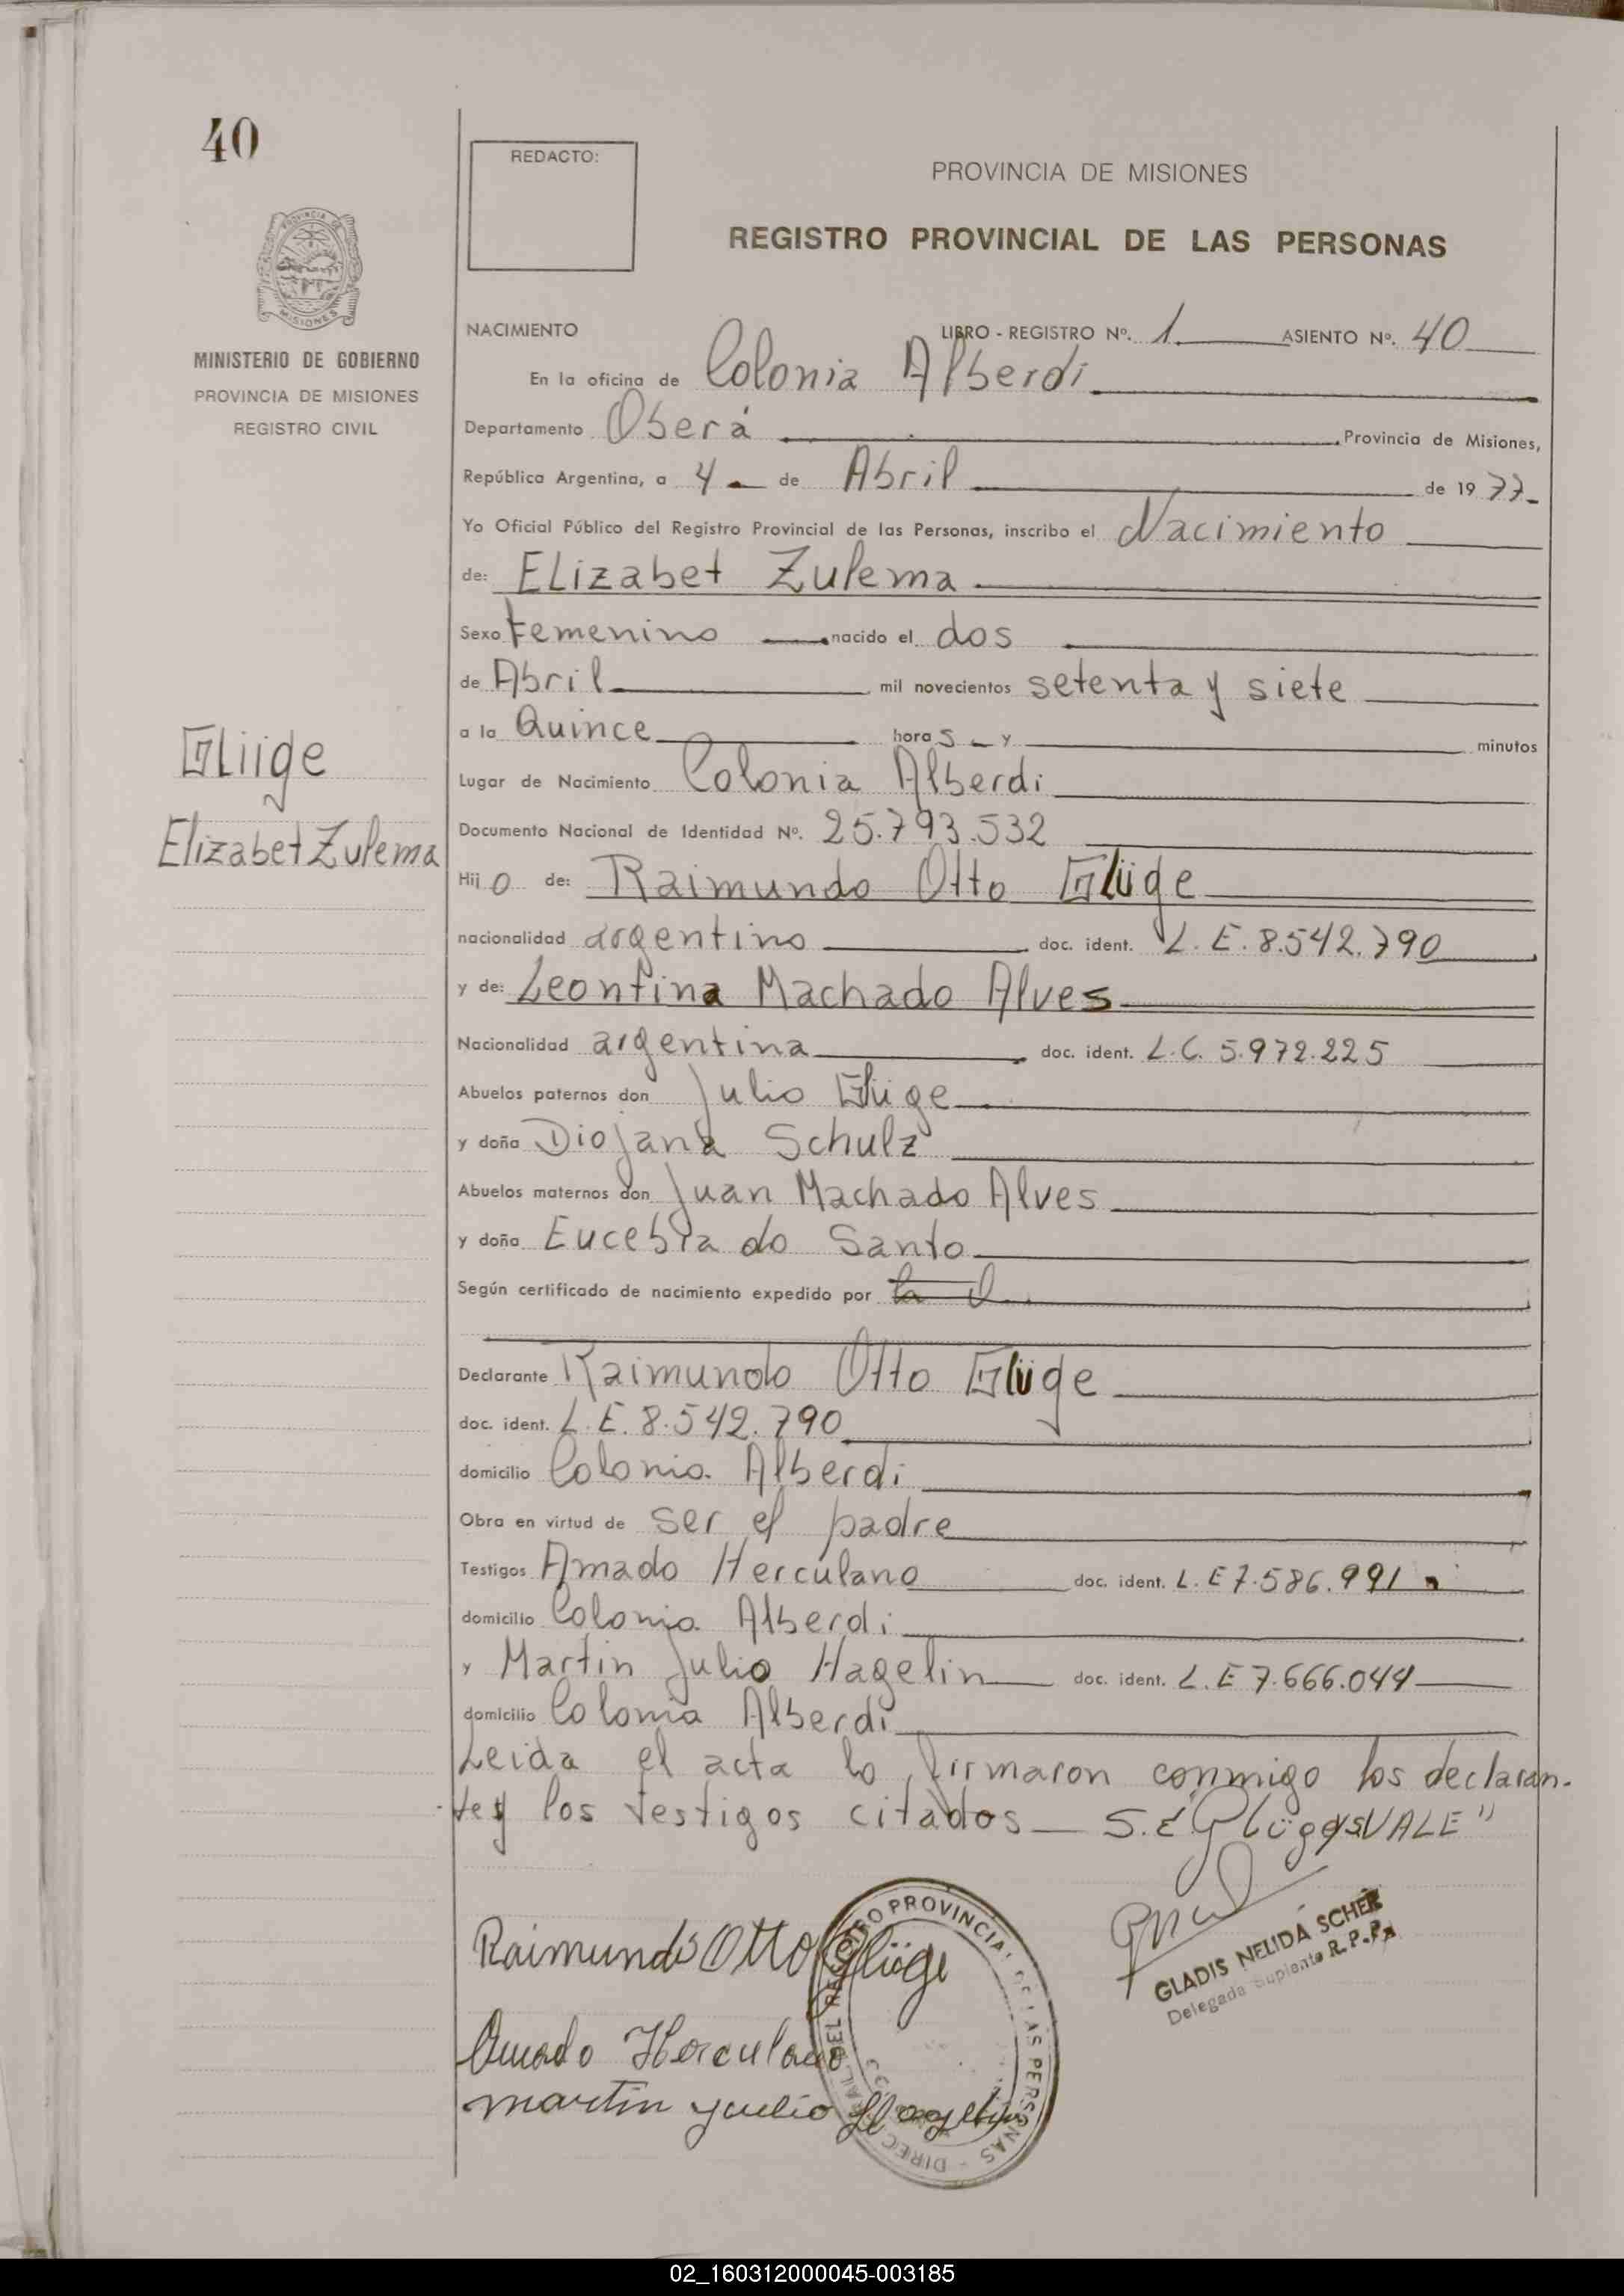 40
REDACTO:
PROVINCIA DE MISIONES
REGISTRO PROVINCIAL DE LAS PERSONAS
PROVINCIA DE
MISIONES
MINISTERIO DE GOBIERNO
PROVINCIA DE MISIONES
REGISTRO CIVIL
NACIMIENTO LIBRO - REGISTRO Nº. 1 ASIENTO Nº. 40
En la oficina de Colonia Alberdi
Departamento Oberá Provincia de Misiones,
República Argentina, a 4 de Abril de 1977
Yo Oficial Público del Registro Provincial de las Personas, inscribo el Nacimiento
de: Elizabet Zulema
Sexo Femenino nacido el dos
de Abril mil novecientos setenta y siete
a la Quince horas y minutos
Glüge
Elizabet Zulema
Lugar de Nacimiento Colonia Alberdi
Documento Nacional de Identidad Nº. 25.793.532
Hijo de: Raimundo Otto Glüge
nacionalidad argentino doc. ident. L.E. 8.542.790
y de: Leontina Machado Alves
Nacionalidad argentina doc. ident. L.C. 5.972.225
Abuelos paternos don Julio Glüge
y doña Diojana Schulz
Abuelos maternos don Juan Machado Alves
y doña Eucebia do Santo
Según certificado de nacimiento expedido por
Declarante Raimundo Otto Glüge
doc. ident. L.E. 8.542.790
domicilio Colonia Alberdi
Obra en virtud de ser el padre
Testigos Amado Herculano doc. ident. L.E 7.586.991
domicilio Colonia Alberdi
y Martin Julio Hagelin doc. ident. L.E 7.666.044
domicilio Colonia Alberdi
Leida el acta lo firmaron conmigo los declaran-
te y los testigos citados S.E "Glüge" VALE"
Raimundo Otto Glüge
Amado Herculano
martin julio Hagelin
GLADIS NELIDA SCHER
Delegada Suplente R.P.P.
REGISTRO PROVINCIAL DE LAS PERSONAS
02_160312000045-003185